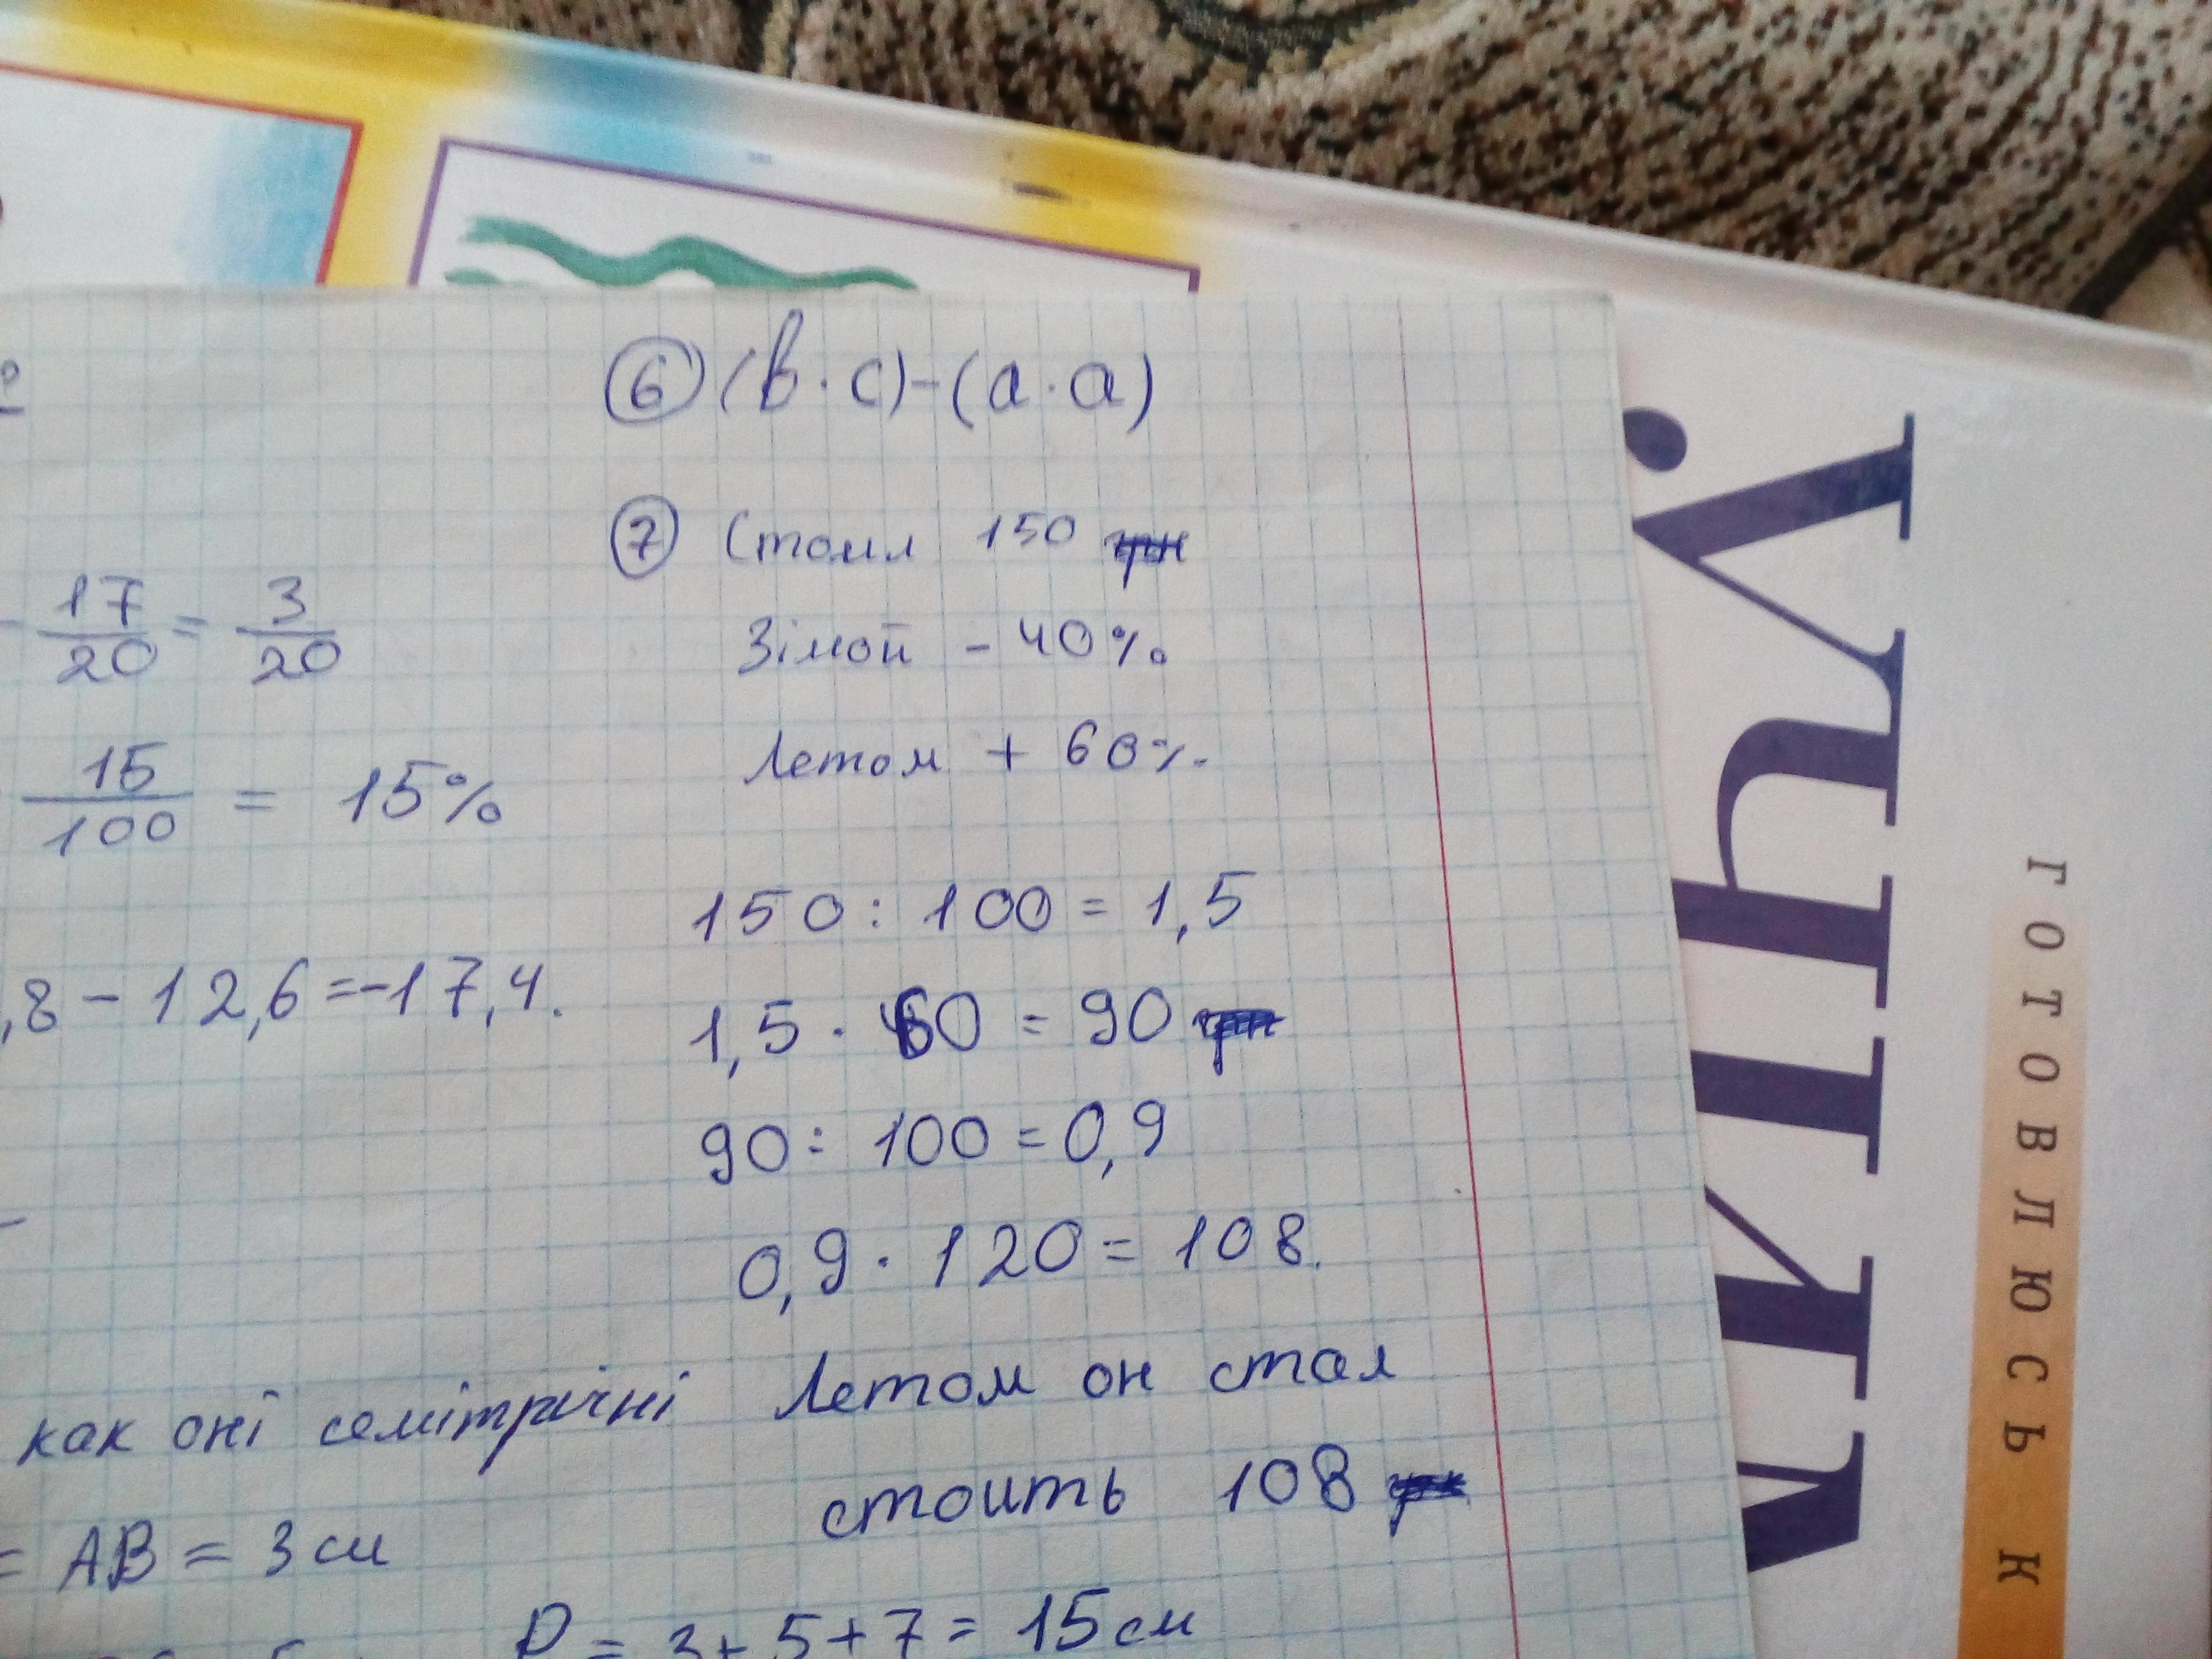 17/20 = 3/20
15/100 = 15%
,8 - 12,6 = -17,4.
как оні семітричні
= АВ = 3 см
6 (b · c) - (a · a)
7 Стоил 150 грн
Зімой - 40%
Летом + 60%
150 : 100 = 1,5
1,5 · 60 = 90 грн
90 : 100 = 0,9
0,9 · 120 = 108.
Летом он стал
стоить 108
P = 3 + 5 + 7 = 15 см
УЧИМ
ГОТОВЛЮСЬ К